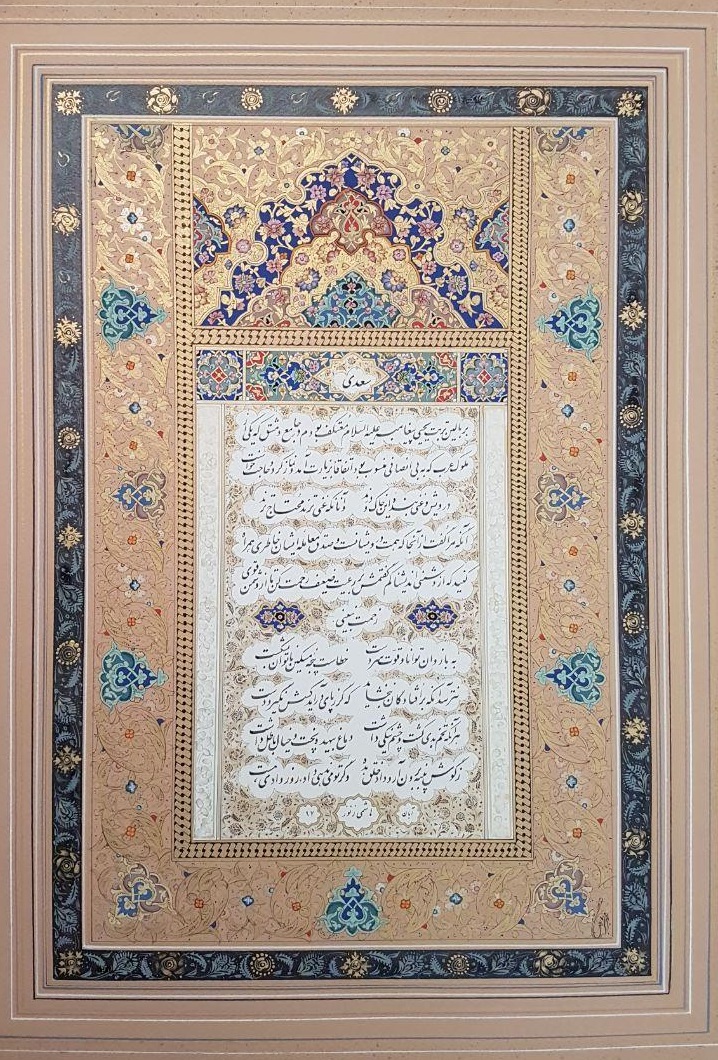 سعدی
بر بالین تربت یحیی پیغامبر علیه السلام معتکف بودم در جامع دمشق که یکی از
ملوک عرب که به بی انصافی منسوب بود اتفاقا بزیارت آمد نماز کرد و حاجت خواست
درویش و غنی بنده این خاک درند و آنانکه غنی ترند محتاج ترند
آنگه مرا گفت از آنجا که همت درویشانست و صدق معامله ایشان خاطری همراه
کنید که از دشمنی اندیشناکم گفتمش بر رعیت ضعیف رحمت کن تا از دشمن قوی
زحمت نبینی
به بازوان توانا و قوت سر دست خطاست پنجه مسکین ناتوان بشکست
نترسد آنکه بر افتادگان نبخشاید که گر ز پای در آید کسش نگیرد دست
هر آنکه تخم بدی کشت و چشم نیکی داشت دماغ بیهده پخت و خیال باطل بست
ز گوش پنبه برون آر و داد خلق بده وگر تو می ندهی داد، روز دادی هست
آبان هاشمی زنور ۹۲